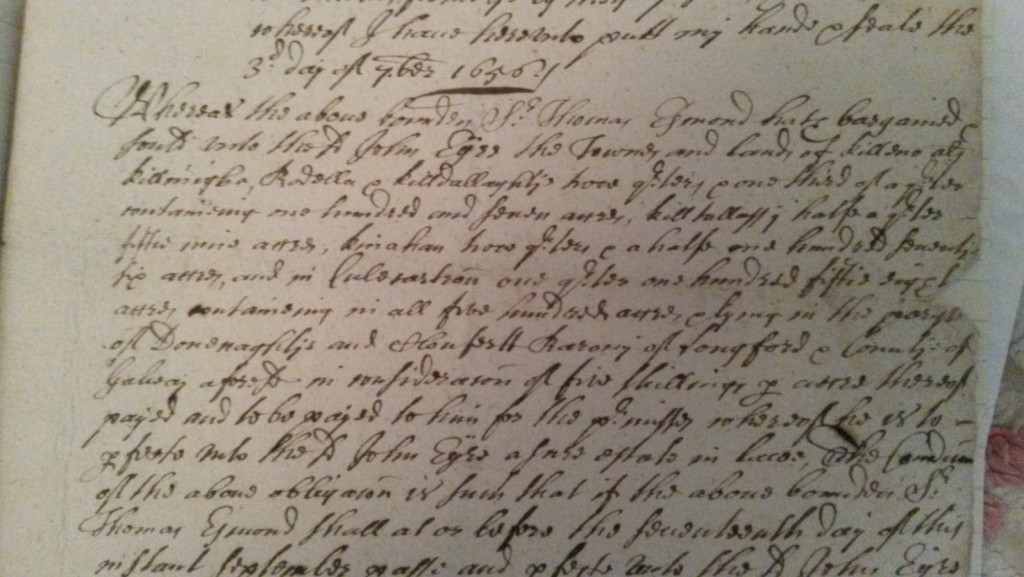 whereof I have hereunto putt my hand & seale the
3d day of 7ber 1656 //
Whereas the above bounden Sr Thomas Esmond hath bargained &
sould unto the sd John Eyre the Townes and lands of Killeno als
Rodella & Killdallaghtje twoe qrters & one third of a qrter
contameing one hundred and seven acres, halfe a qrter
fiftie nine acres, Kinahan twoe qrters & a halfe one hundred seventie
six acres, and in one qrter one hundred fiftie eight
acres, contameing in all five hundred acres & lying in the parish
of Donenaghtje and Clonfertt Barony of Longford & County of
Galway aforesd in consideracon of five shillings p acre thereof
payed and to be payed to him for the prmisses whereof he is to
pfecte unto the sd John Eyre a sure estate in lawe, The Condicon
of the above obligacon is such that if the above bounden Sr
Thomas Esmond shall at or before the seventeenth day of this
instant September passe and pfecte unto the sd John Eyre